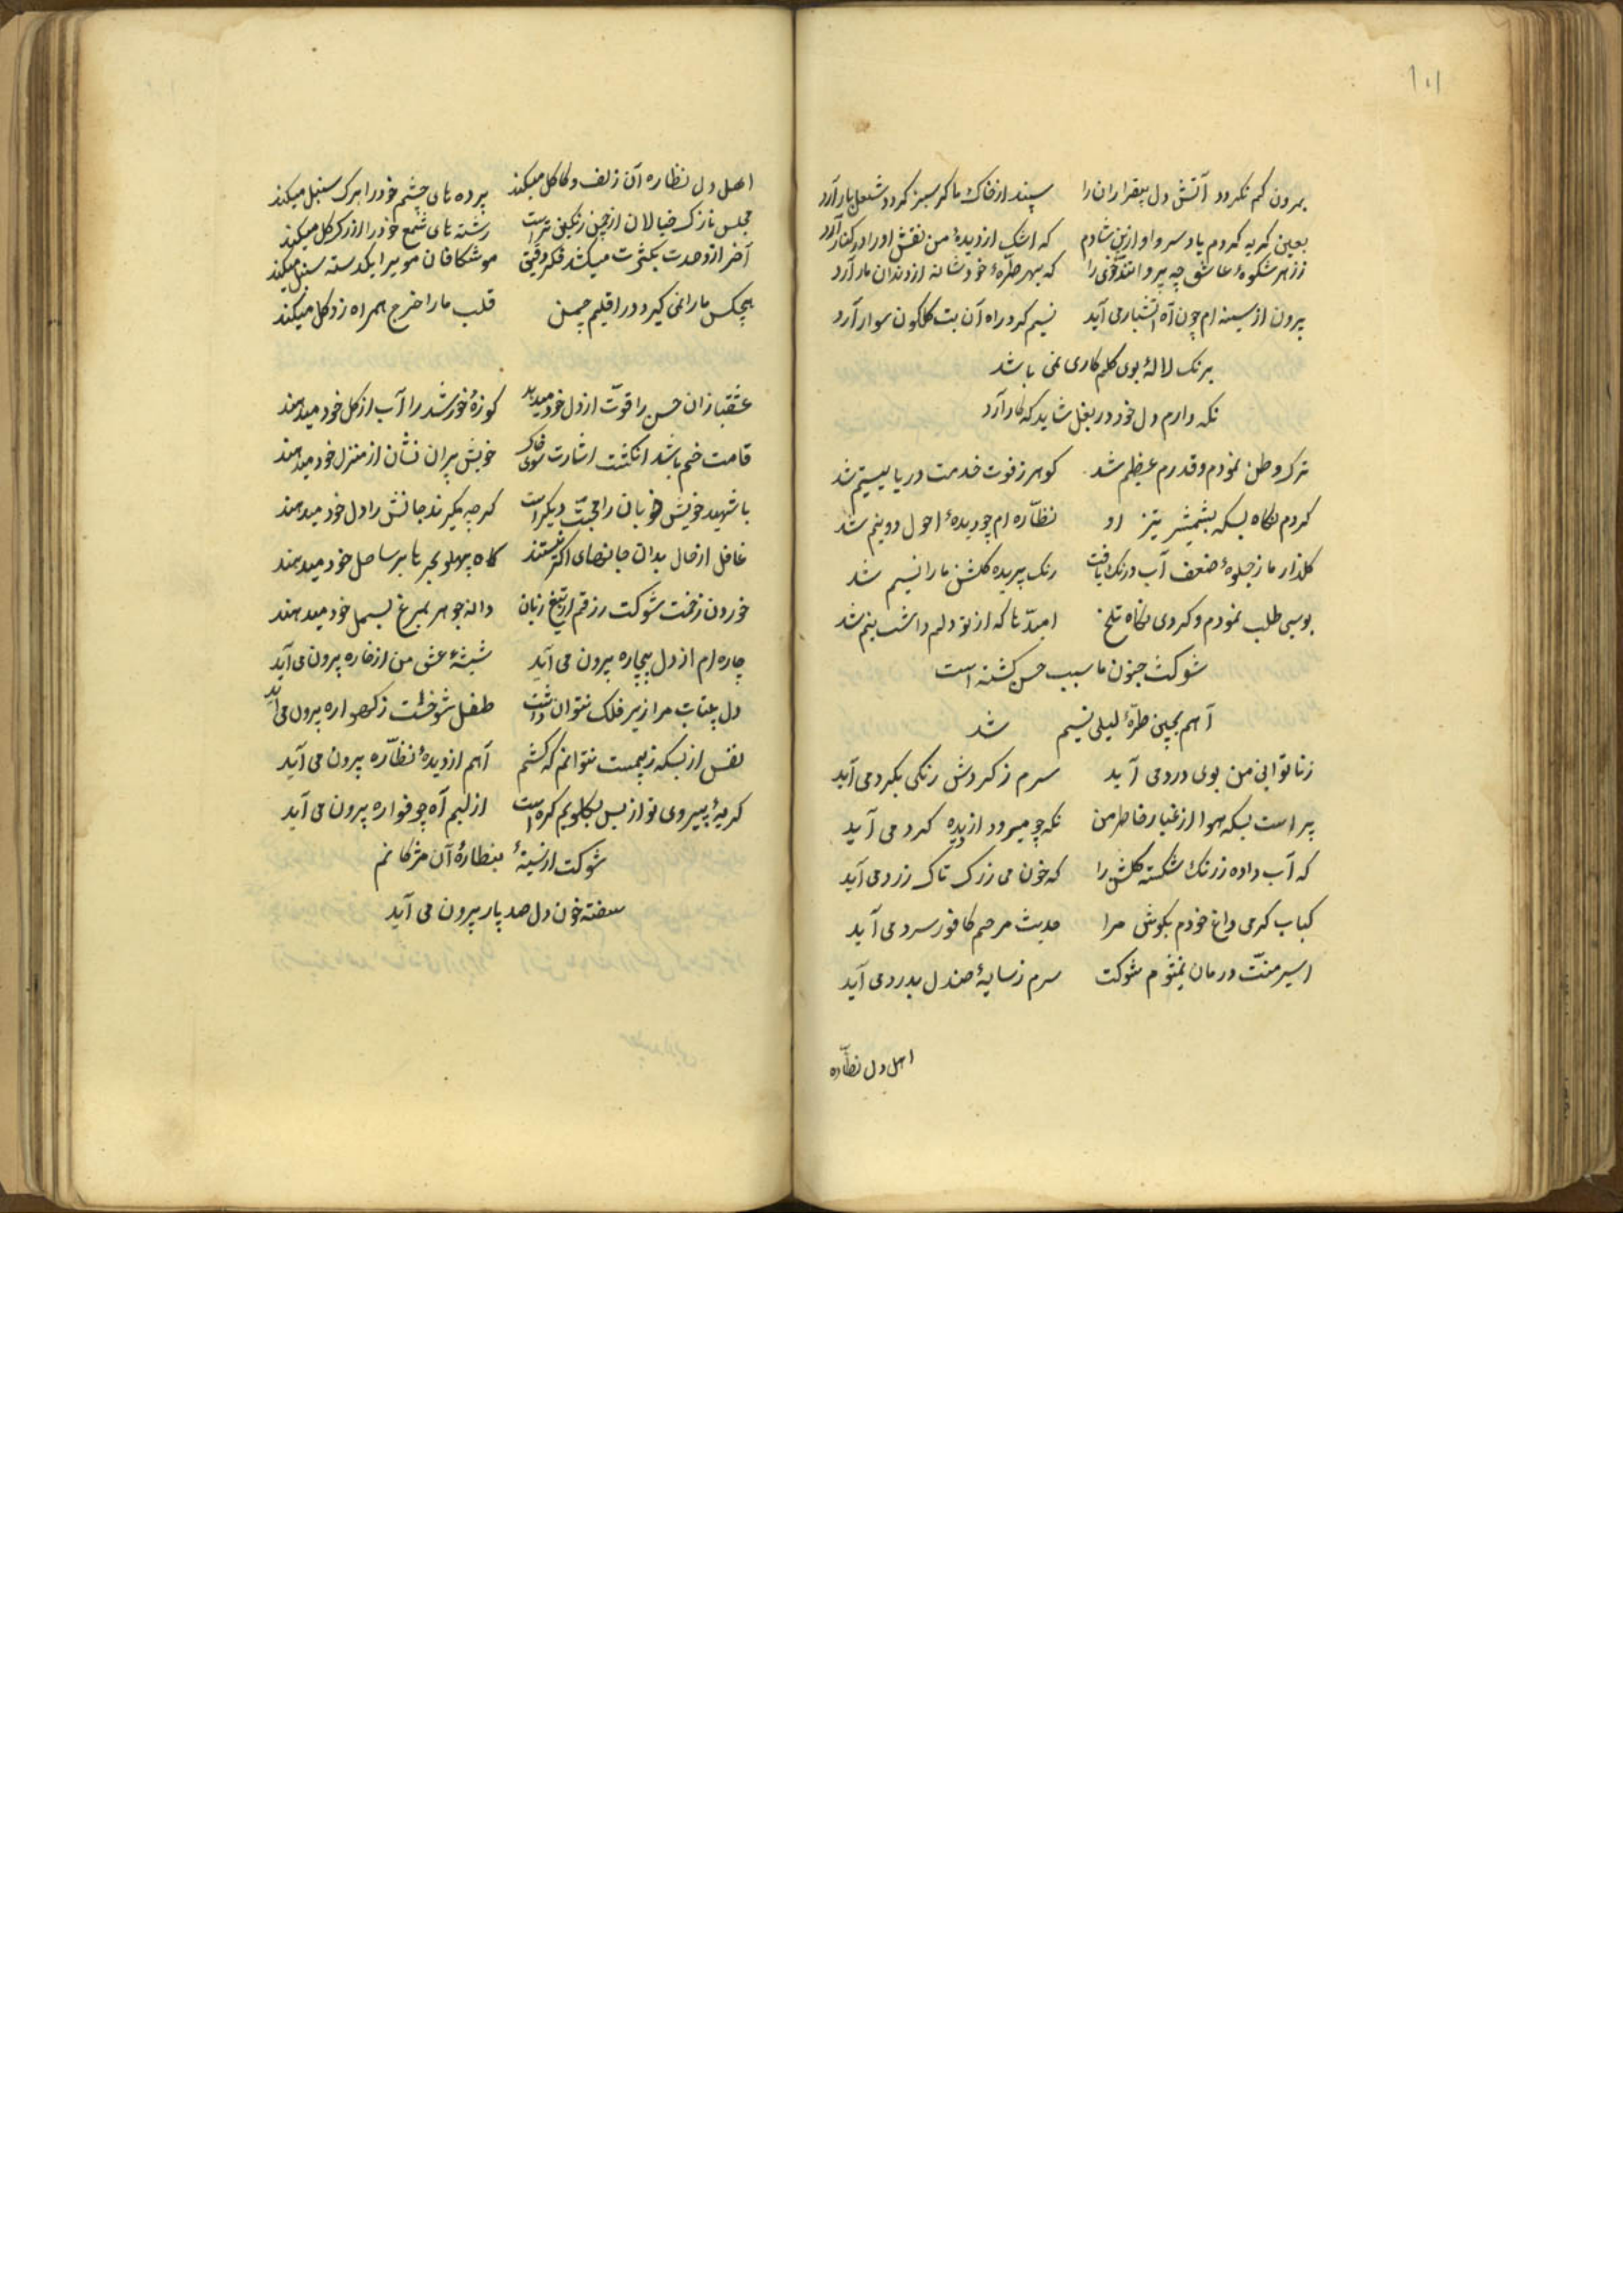 ۱۰۱
بمردن کم نکردد آتش دل بیقراران را سپند از خاک ما کر سبز کردد شعله بار آرد
بعین کریه کردم یاد سرو او ازین شادم که اشک از دیدهٔ من نقش او را در کنار آرد
ز زهر شکوهٔ عاشق چه پروا تندخوئی را که بهر طرّهٔ خود شانه از دندان مار آرد
برون از سینه ام چون آه آتشبار می آید نسیم کرد راه آن بت کلکون سوار آرد
برنک لالهٔ بوی کلم کاری نمی باشد
نکه دارم دل خود در بغل شاید که کار آرد
ترک وطن نمودم و قدرم عظیم شد کوهر ز فوت خدمت دریا یتیم شد
کردم نکاه بسکه بشمشیر تیز او نظّاره ام چو دیدهٔ احول دو نیم شد
کلذار ما ز جلوهٔ ضعف آب و رنک یافت رنک پریده کلشن ما را نسیم شد
بوسی طلب نمودم و کردی نکاه تلخ امیدّ ها که از تو دلم داشت بیم شد
شوکت جنون ما سبب حسن کشته است
آهم بچین طرّهٔ لیلی نسیم شد
ز ناتوانی من بوی درد می آید سرم ز کردش رنکی بکرد می آید
پر است بسکه هوا از غبار خاطر من نکه چو میرود از دیده کرد می آید
که آب داده ز رنک شکسته کلشن را که خون می ز رک تاک زرد می آید
کباب کرمی داغ خودم بکوش مرا حدیث مرهم کافور سرد می آید
اسیر منّت درمان نیم شوکت سرم ز سایهٔ صندل بدرد می آید
اهل دل نظّاره
اهل دل نظاره آن زلف و کاکل میکند پرده های چشم خود را برک سنبل میکند
مجلس نازک خیالان از چمن رنکین تر است رشته های شمع خود را از رک کل میکند
آخر از وحدت بکثرت میکشد فکر دقیق موشکافان مو بر ایکدسته سنبل میکند
هیچکس ما را نمی کیرد در اقلیم چمن قلب ما را خرج همراه زر کل میکند
عشقبازان حسن را قوّت از دل خود میدهند کوزهٔ خورشید را آب از کل خود میدهند
قامت خم باشد انکشت اشارت سوی خاک خویش پیران نشان از منزل خود میدهند
با شهید خویش خوبان را محبّت دیکر است کر چه میکیرند جانش را دل خود میدهند
غافل از حال بدان جانهای اکثر نیستند کاه پهلو بحر ها بر ساحل خود میدهند
خوردن زخمت شوکت رزقم از تیغ زبان دانه جوهر بمرغ بسمل خود میدهند
چاره ام از دل بیچاره برون می آید شیشهٔ عشق من از خاره برون می آید
دل بیتاب مرا زیر فلک نتوان داشت طفل شوخست ز کهواره برون می آید
نفس از بسکه ز بیمت نتوانم که کشم آهم از دیدهٔ نظّاره برون می آید
کریهٔ پیروی تو از بس بکلویم کره است از لبم آه چو فواره برون می آید
شوکت از سینهٔ بنظارهٔ آن مژکانم
سفته خون دل صد پاره برون می آید